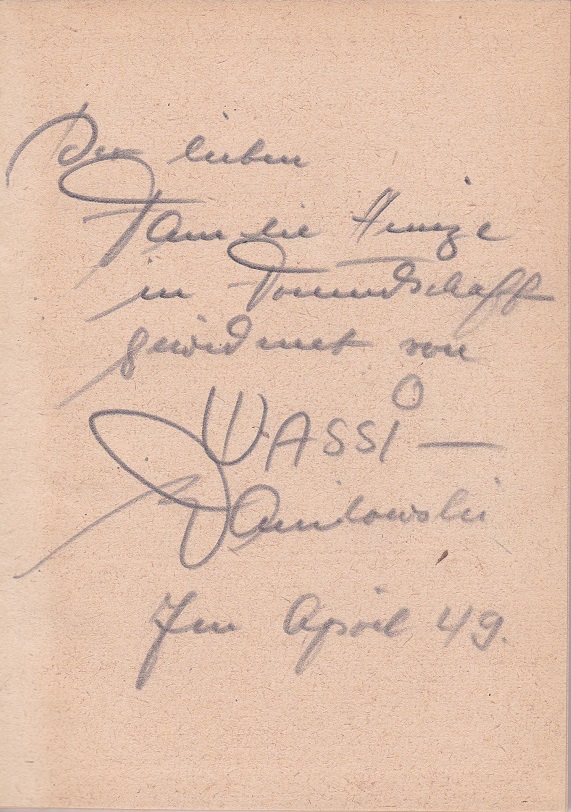 Der lieben
Familie Heinze
in Freundschaft
gewidmet von
WASSI –
Danilowski
Im April 49.